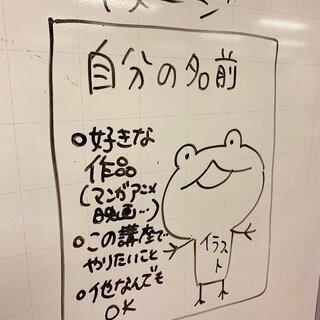 自分の名前
○好きな
作品
(マンガアニメ
映画…)
○この講座で
やりたいこと
○他なんでも
OK
イラス
ト